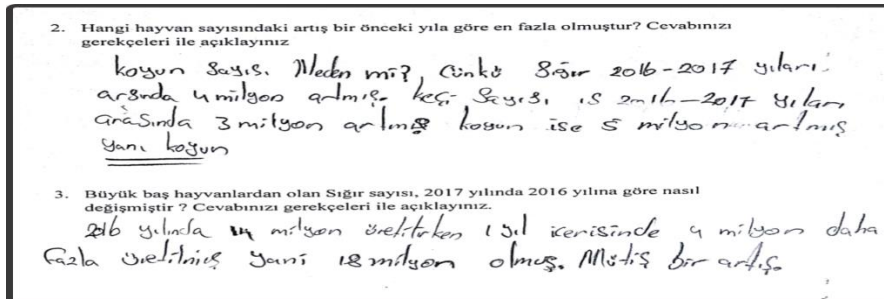 2. Hangi hayvan sayısındaki artış bir önceki yıla göre en fazla olmuştur? Cevabınızı
gerekçeleri ile açıklayınız
koyun sayısı. Neden mi?, Çünkü Sığır 2016-2017 yılları
arsında 4 milyon artmış. keçi sayısı, 2016-2017 yılları
arasında 3 milyon artmış koyun ise 5 milyon artmış
yani koyun
3. Büyük baş hayvanlardan olan Sığır sayısı, 2017 yılında 2016 yılına göre nasıl
değişmiştir ? Cevabınızı gerekçeleri ile açıklayınız.
2016 yılında 14 milyon üretilirken 1 yıl icerisinde 4 milyon daha
fazla üretilmiş yani 18 milyon olmuş. Mütiş bir artış.